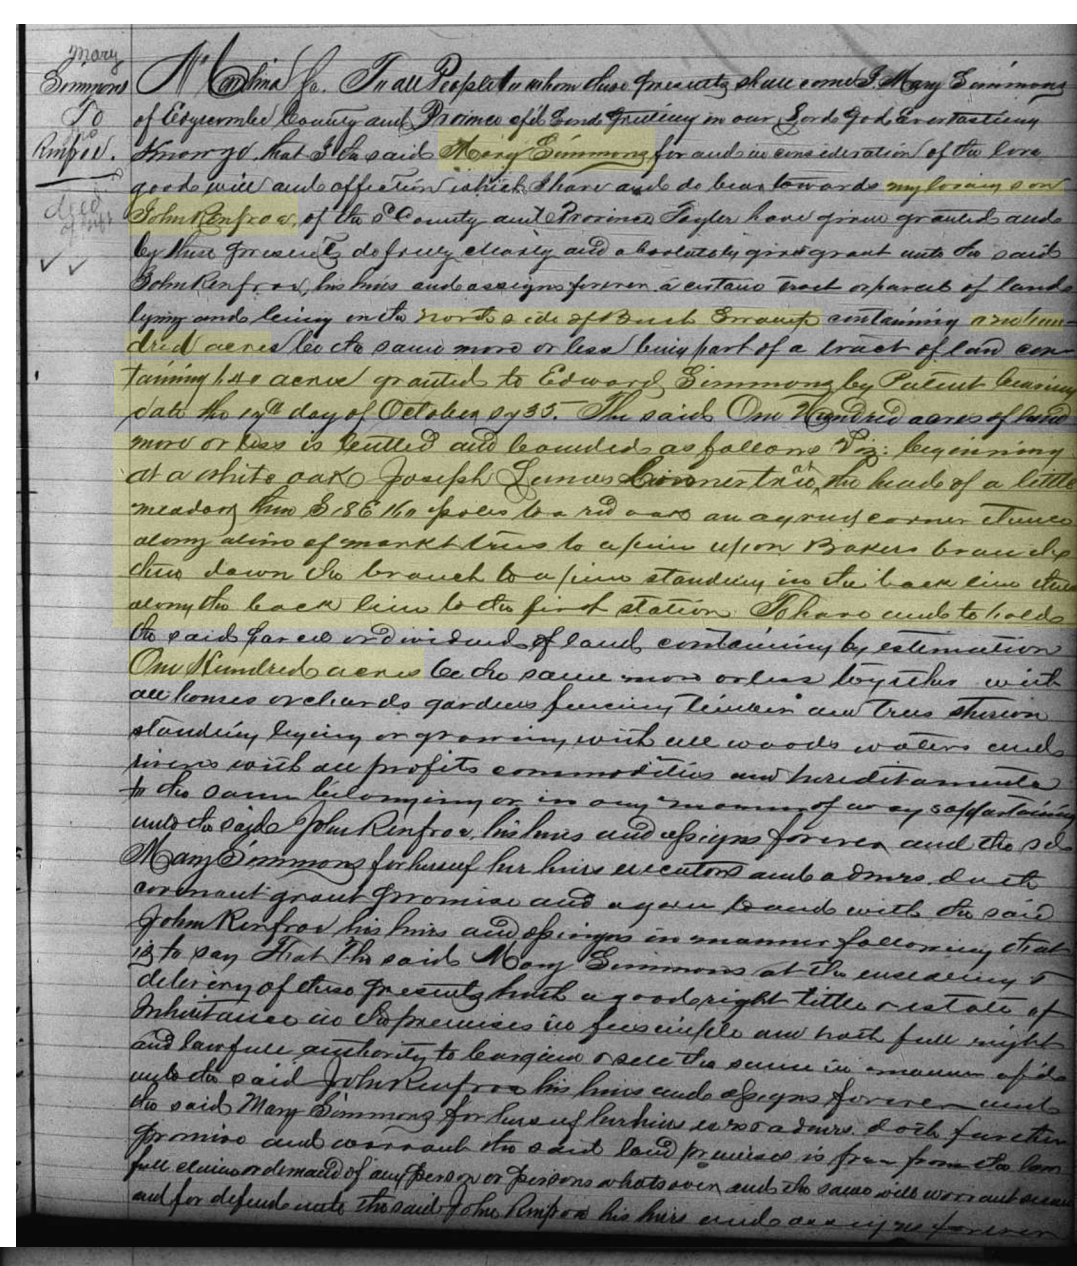 Mary
Simmons
To
Renfroe.
deed
of gift
No Carolina Sc. To all People to whom these presents shall come I Mary Simmons
of Edgecombe County and Province afsd Send Greeting in our Lord God Everlasting
Know ye, that I the said Mary Simmons for and in consideration of the love
good will and affection which I have and do bear towards my loving son
John Renfroe, of the sd County and Province Taylor have given granted and
by these presents do freely clearly and absolutely give & grant unto the said
John Renfroe, his heirs and assigns forever a certain tract or parcel of land
lying and being on the north side of Swamp containing one hun-
dred acres be the same more or less being part of a tract of land con-
taining 640 acres granted to Edward Simmons by Patent bearing
date the day of October 1735. The said One Hundred acres of land
more or less is butted and bounded as follows Viz: beginning
at a white oak Joseph Corner tree, at the head of a little
meadow then S 18 E 160 poles to a red oak an agreed corner thence
along a line of markt trees to a pine upon Bakers branch
then down the branch to a pine standing in the back line then
along the back line to the first station. To have and to hold
the said parcel or dividend of land containing by estimation
One Hundred acres be the same more or less together with
all houses orchards gardens fencing timber and trees thereon
standing lying or growing with all woods waters and
rivers with all profits commodities and hereditaments
to the same belonging or in any manner of way appertaining
unto the said John Renfroe, his heirs and assigns forever and the sd
Mary Simmons for herself her heirs executors and admrs. doth
covenant grant promise and agree to and with the said
John Renfroe his heirs and assigns in manner following that
is to say That The said Mary Simmons at the ensealing &
delivery of these presents hath a good right title & estate of
Inheritance in the premises in fee simple and hath full right
and lawfull authority to bargain & sell the same in manner afsd
unto the said John Renfroe his heirs and assigns forever and
the said Mary Simmons for herself her heirs exrs & admrs. doth further
promise and warrant the said land premises is free from the law
full claim or demand of any person or persons whatsoever and the same will warrant secure
and for defend unto the said John Renfroe his heirs and assigns forever